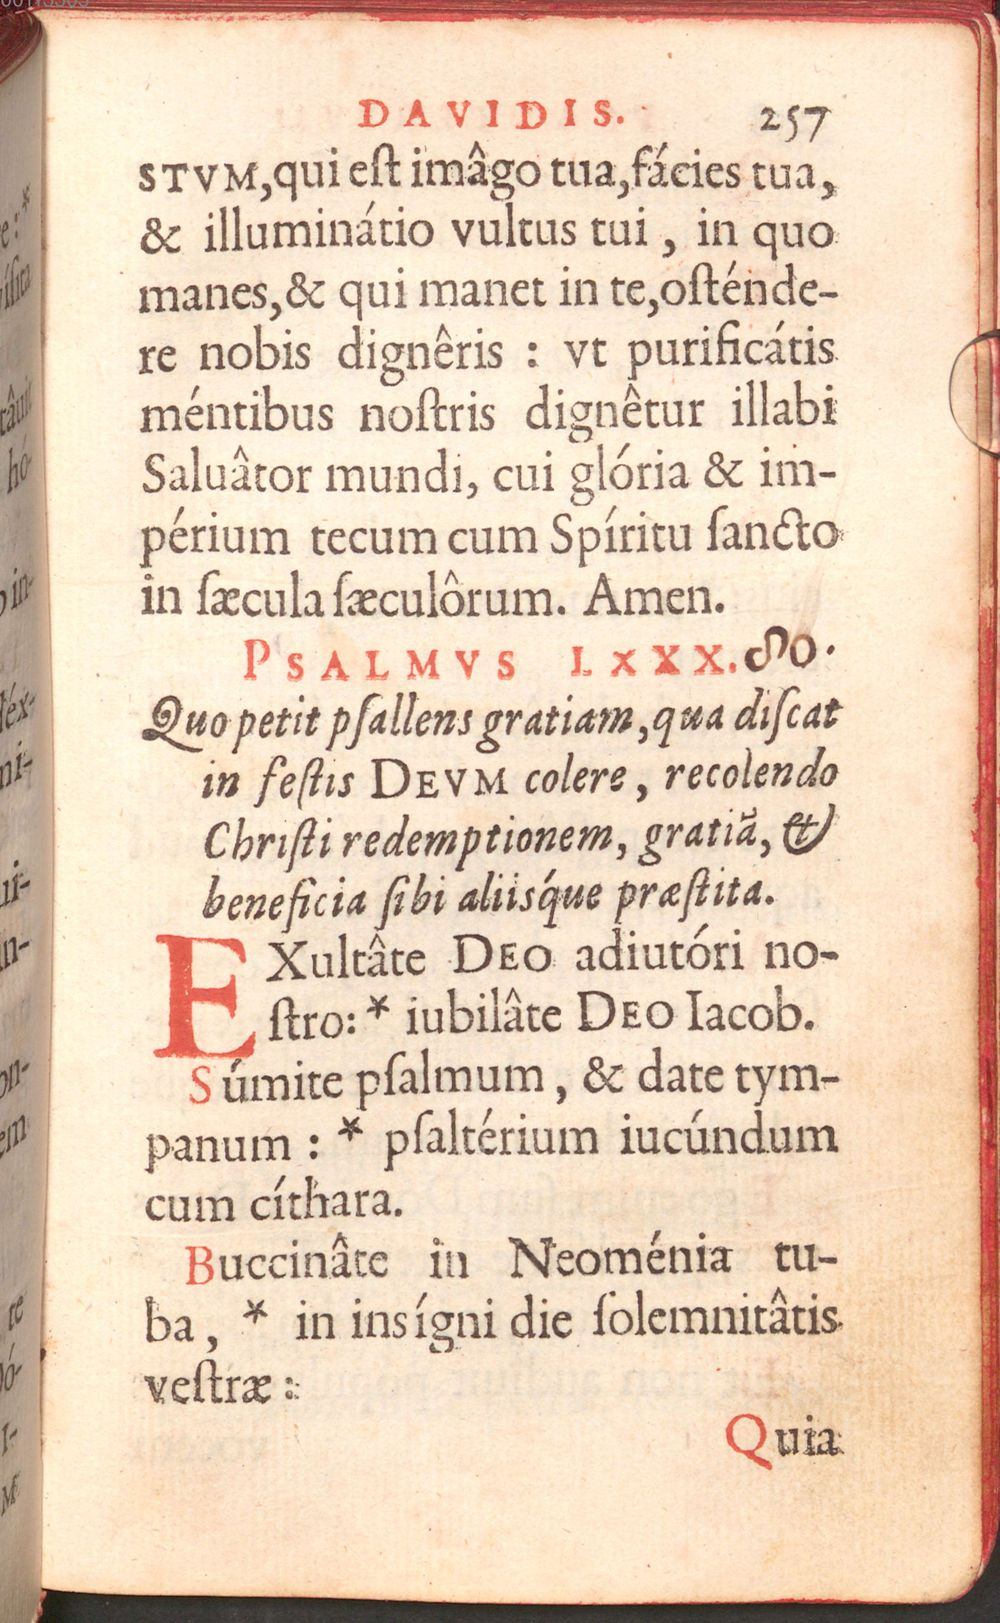 DAVIDIS. 257
STVM,qui eſt imâgo tua,fácies tua,
& illuminátio vultus tui , in quo
manes,& qui manet in te,oſténde-
re nobis dignêris : vt purificátis
méntibus noſtris dignêtur illabi
Saluâtor mundi, cui glória & im-
périum tecum cum Spíritu ſancto
in ſæcula ſæculôrum. Amen.
PSALMVS LXXX. 80.
Quo petit pſallens gratiam,qua diſcat
in feſtis DEVM colere , recolendo
Chriſti redemptionem, gratiā, &
beneficia ſibi aliisq́ue præſtita.
EXultâte DEO adiutóri no-
ſtro: * iubilâte DEO Iacob.
Súmite pſalmum , & date tym-
panum : * pſaltérium iucúndum
cum cíthara.
Buccinâte in Neoménia tu-
ba , * in insígni die ſolemnitâtis
veſtræ :
Quia